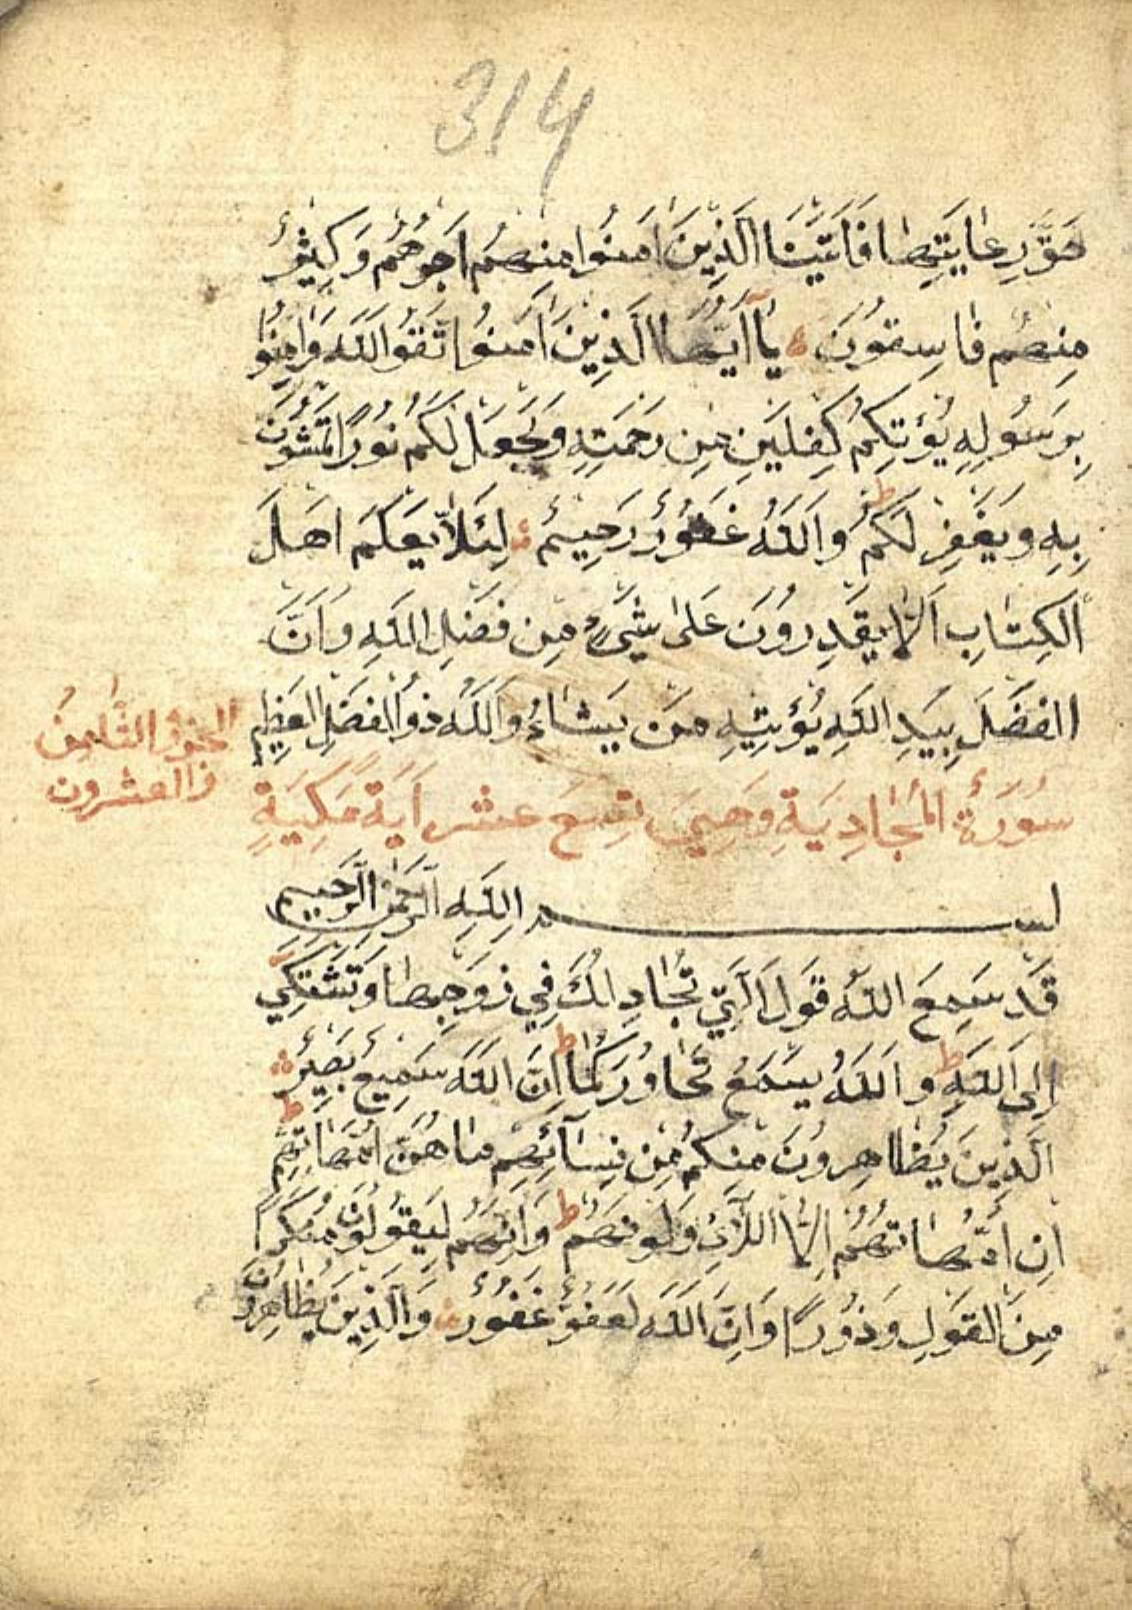 314
حَقَّ رِعَايَتِهَا فَاٰتَيْنَا الَّذِينَ اٰمَنُوا مِنْهُمْ اَجْرَهُمْ وَكَثِيرٌ
مِنْهُمْ فَاسِقُونَ يَاۤ اَيُّهَا الَّذِينَ اٰمَنُوا اتَّقُوا اللَّهَ وَاٰمِنُوا
بِرَسُولِهِ يُؤْتِكُمْ كِفْلَيْنِ مِنْ رَحْمَتِهِ وَيَجْعَلْ لَكُمْ نُورًا تَمْشُونَ
بِهِ وَيَغْفِرْ لَكُمْ ط وَاللَّهُ غَفُورٌ رَحِيمٌ لِئَلَّا يَعْلَمَ اَهْلَ
الْكِتَابِ اَلَّا يَقْدِرُونَ عَلٰى شَيْءٍ مِنْ فَضْلِ اللَّهِ وَاَنَّ
الْفَضْلَ بِيَدِ اللَّهِ يُؤْتِيهِ مَنْ يَشَاءُ وَاللَّهُ ذُو الْفَضْلِ الْعَظِيمِ
الجزؤ الثامن
والعشرون
سُورَةُ الْمُجَادِيَةِ وَهِيَ تِسْعَ عَشْرَ اٰيَةً مَكِّيَّةٍ
بسم اللَّهِ الرَّحْمٰنِ الرَّحِيمِ
قَدْ سَمِعَ اللَّهُ قَوْلَ الَّتِي تُجَادِلُكَ فِي زَوْجِهَا وَتَشْتَكِي
اِلَى اللَّهِ ط وَاللَّهُ يَسْمَعُ تَحَاوُرَكُمَا ط اِنَّ اللَّهَ سَمِيعٌ بَصِيرٌ
الَّذِينَ يُظَاهِرُونَ مِنْكُمْ مِنْ نِسَآئِهِمْ مَا هُنَّ اُمَّهَاتِهِمْ ط
اِنْ اُمَّهَاتُهُمْ اِلَّا اللَّائِي وَلَدْنَهُمْ ط وَاِنَّهُمْ لَيَقُولُونَ مُنْكَرًا
مِنَ الْقَوْلِ وَزُورًا وَاِنَّ اللَّهَ لَعَفُوٌّ غَفُورٌ وَالَّذِينَ يُظَاهِرُونَ